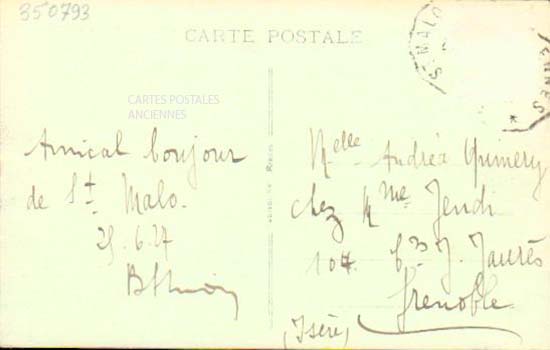 350793
CARTE POSTALE
ST MALO
RENNES
CARTES POSTALES
ANCIENNES
Amical bonjour
de St. Malo.
25.6.27
Melle Andréa Quimery
chez Mme
104 Crs J. Jaurès
Grenoble
(Isère)